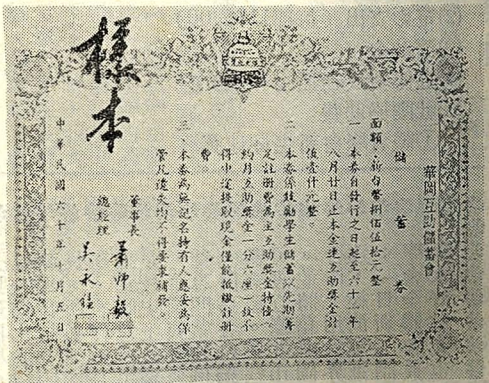 樣本
華岡互助儲蓄會
儲蓄券
面額：新台幣捌佰伍拾元整
一、本券自發行之日起至六十一年
八月廿日止本金連互助獎金計
值壹仟元整。
二、本券係鼓勵學生儲蓄以先期專
足註冊費為主互助獎金特優
約月互助獎金一分六厘一致不
得中途提取現金僅能抵繳註冊
費
三、本券為無記名持有人應妥為保
管凡遺失均不得要求補發
董事長 蕭師毅
總經理 吳永
中華民國六十年十月五日